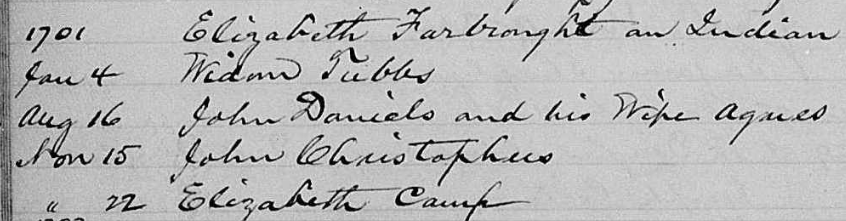 1701 Elizabeth Farbrought an Indian
Jan 4 Widow Tubbs
Aug 16 John Daniels and his Wife Agnes
Nov 15 John Christophers
" 22 Elizabeth Camp